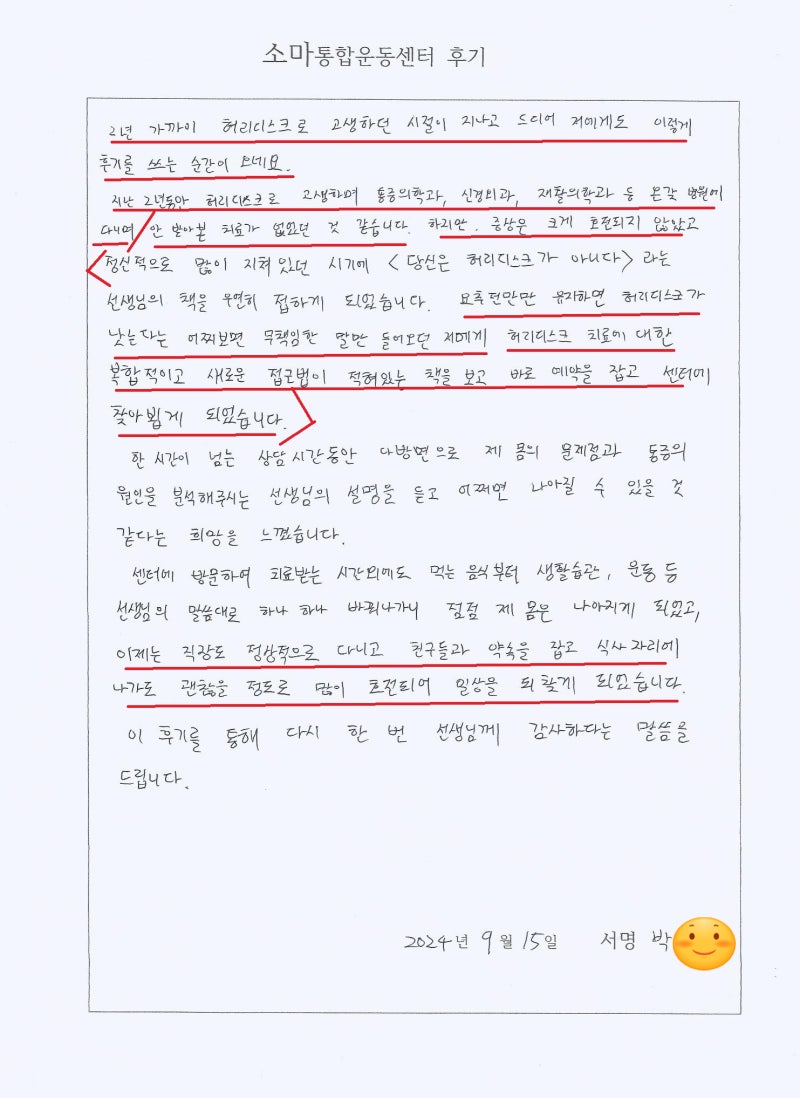 소마통합운동센터 후기
2년 가까이 허리디스크로 고생하던 시절이 지나고 드디어 저에게도 이렇게
후기를 쓰는 순간이 오네요.
지난 2년동안 허리디스크로 고생하며 통증의학과, 신경외과, 재활의학과 등 온갖 병원에
다니며 안 받아본 치료가 없었던 것 같습니다. 하지만, 증상은 크게 호전되지 않았고
정신적으로 많이 지쳐있던 시기에 <당신은 허리디스크가 아니다>라는
선생님의 책을 우연히 접하게 되었습니다. 요추전만만 유지하면 허리디스크가
낫는다는 어찌보면 무책임한 말만 들어오던 저에게 허리디스크 치료에 대한
복합적이고 새로운 접근법이 적혀있는 책을 보고 바로 예약을 잡고 센터에
찾아뵙게 되었습니다.
한 시간이 넘는 상담시간동안 다방면으로 제 몸의 문제점과 통증의
원인을 분석해주시는 선생님의 설명을 듣고 어쩌면 나아질 수 있을 것
같다는 희망을 느꼈습니다.
센터에 방문하여 치료받는 시간외에도 먹는 음식부터 생활습관, 운동 등
선생님의 말씀대로 하나 하나 바꿔나가니 점점 제 몸은 나아지게 되었고,
이제는 직장도 정상적으로 다니고 친구들과 약속을 잡고 식사 자리에
나가도 괜찮을 정도로 많이 호전되어 일상을 되찾게 되었습니다.
이 후기를 통해 다시 한 번 선생님께 감사하다는 말씀을
드립니다.
2024년 9월 15일 서명 박